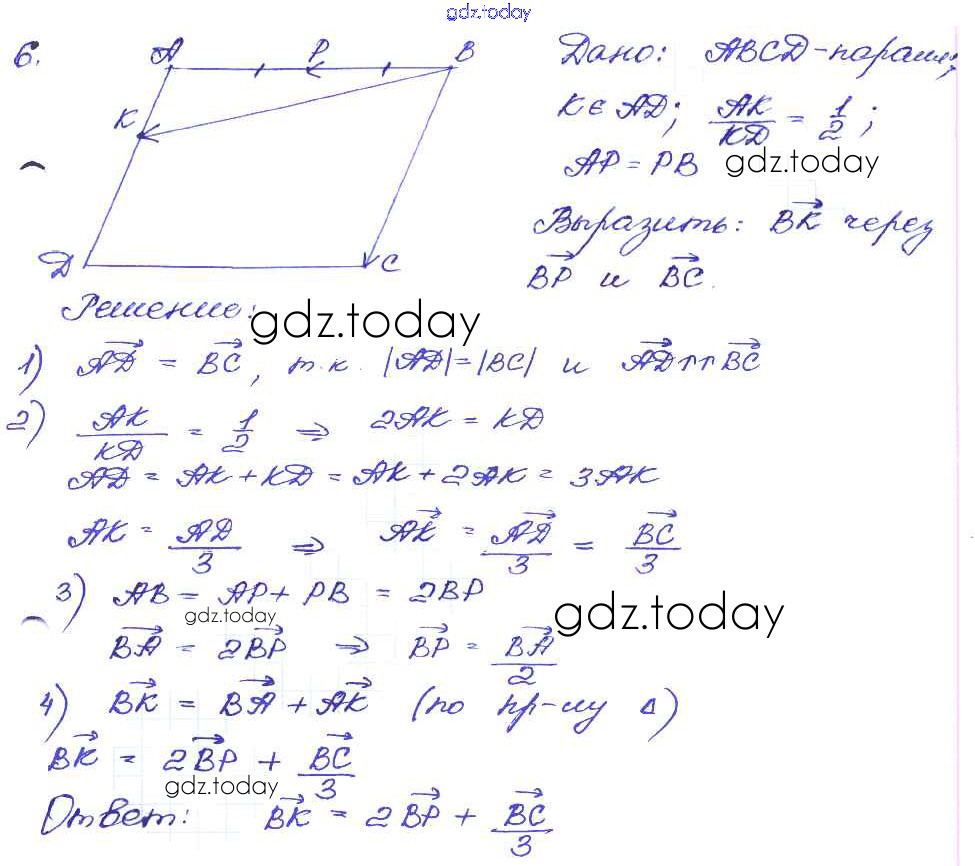 gdz.today
6.
A P B
K
D C
Дано: ABCD-паралл,
K∈AD; AK/KD = 1/2;
AP = PB gdz.today
Выразить: BK⃗ через
BP⃗ и BC⃗.
Решение:
gdz.today
1) AD⃗ = BC⃗, т.к. |AD|=|BC| и AD⃗↑↑BC⃗
2) AK/KD = 1/2 ⇒ 2AK = KD
AD = AK + KD = AK + 2AK = 3AK
AK = AD/3 ⇒ AK⃗ = AD⃗/3 = BC⃗/3
3) AB = AP + PB = 2BP
gdz.today gdz.today
BA⃗ = 2BP⃗ ⇒ BP⃗ = BA⃗/2
4) BK⃗ = BA⃗ + AK⃗ (по пр-лу Δ)
BK⃗ = 2BP⃗ + BC⃗/3
gdz.today
Ответ: BK⃗ = 2BP⃗ + BC⃗/3